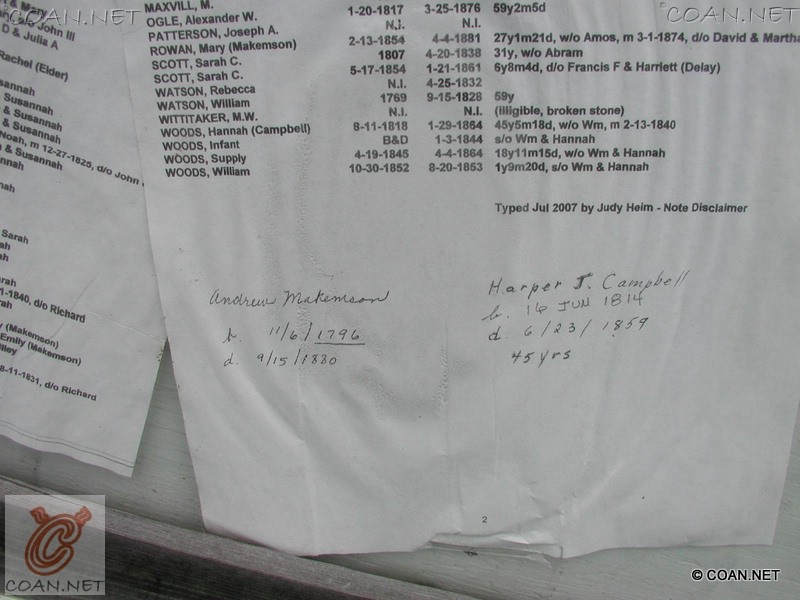 & Mary
John III
D & Julia A
Rachel (Elder)
Susannah
& Susannah
& Susannah
& Susannah
Noah, m 12-27-1825, d/o John
& Susannah
Sarah
1-1840, d/o Richard
(Makemson)
Emily (Makemson)
8-11-1831, d/o Richard
MAXVILL, M.
OGLE, Alexander W. 1-20-1817 3-25-1876 59y2m5d
PATTERSON, Joseph A. N.I. N.I.
ROWAN, Mary (Makemson) 2-13-1854 4-4-1881 27y1m21d, w/o Amos, m 3-1-1874, d/o David & Martha
SCOTT, Sarah C. 1807 4-20-1838 31y, w/o Abram
SCOTT, Sarah C. 5-17-1854 1-21-1861 6y8m4d, d/o Francis F & Harriett (Delay)
WATSON, Rebecca N.I. 4-25-1832
WATSON, William 1769 9-15-1828 59y
WITTITAKER, M.W. N.I. N.I. (illigible, broken stone)
WOODS, Hannah (Campbell) 8-11-1818 1-29-1864 45y5m18d, w/o Wm, m 2-13-1840
WOODS, Infant B&D 1-3-1844 s/o Wm & Hannah
WOODS, Supply 4-19-1845 4-4-1864 18y11m15d, w/o Wm & Hannah
WOODS, William 10-30-1852 8-20-1853 1y9m20d, s/o Wm & Hannah
Typed Jul 2007 by Judy Heim - Note Disclaimer
Andrew Makemson
b. 11/6/1796
d. 9/15/1880
Harper J. Campbell
b. 16 JUN 1814
d. 6/23/1859
45 yrs
2
COAN.NET
COAN.NET
COAN.NET
© COAN.NET